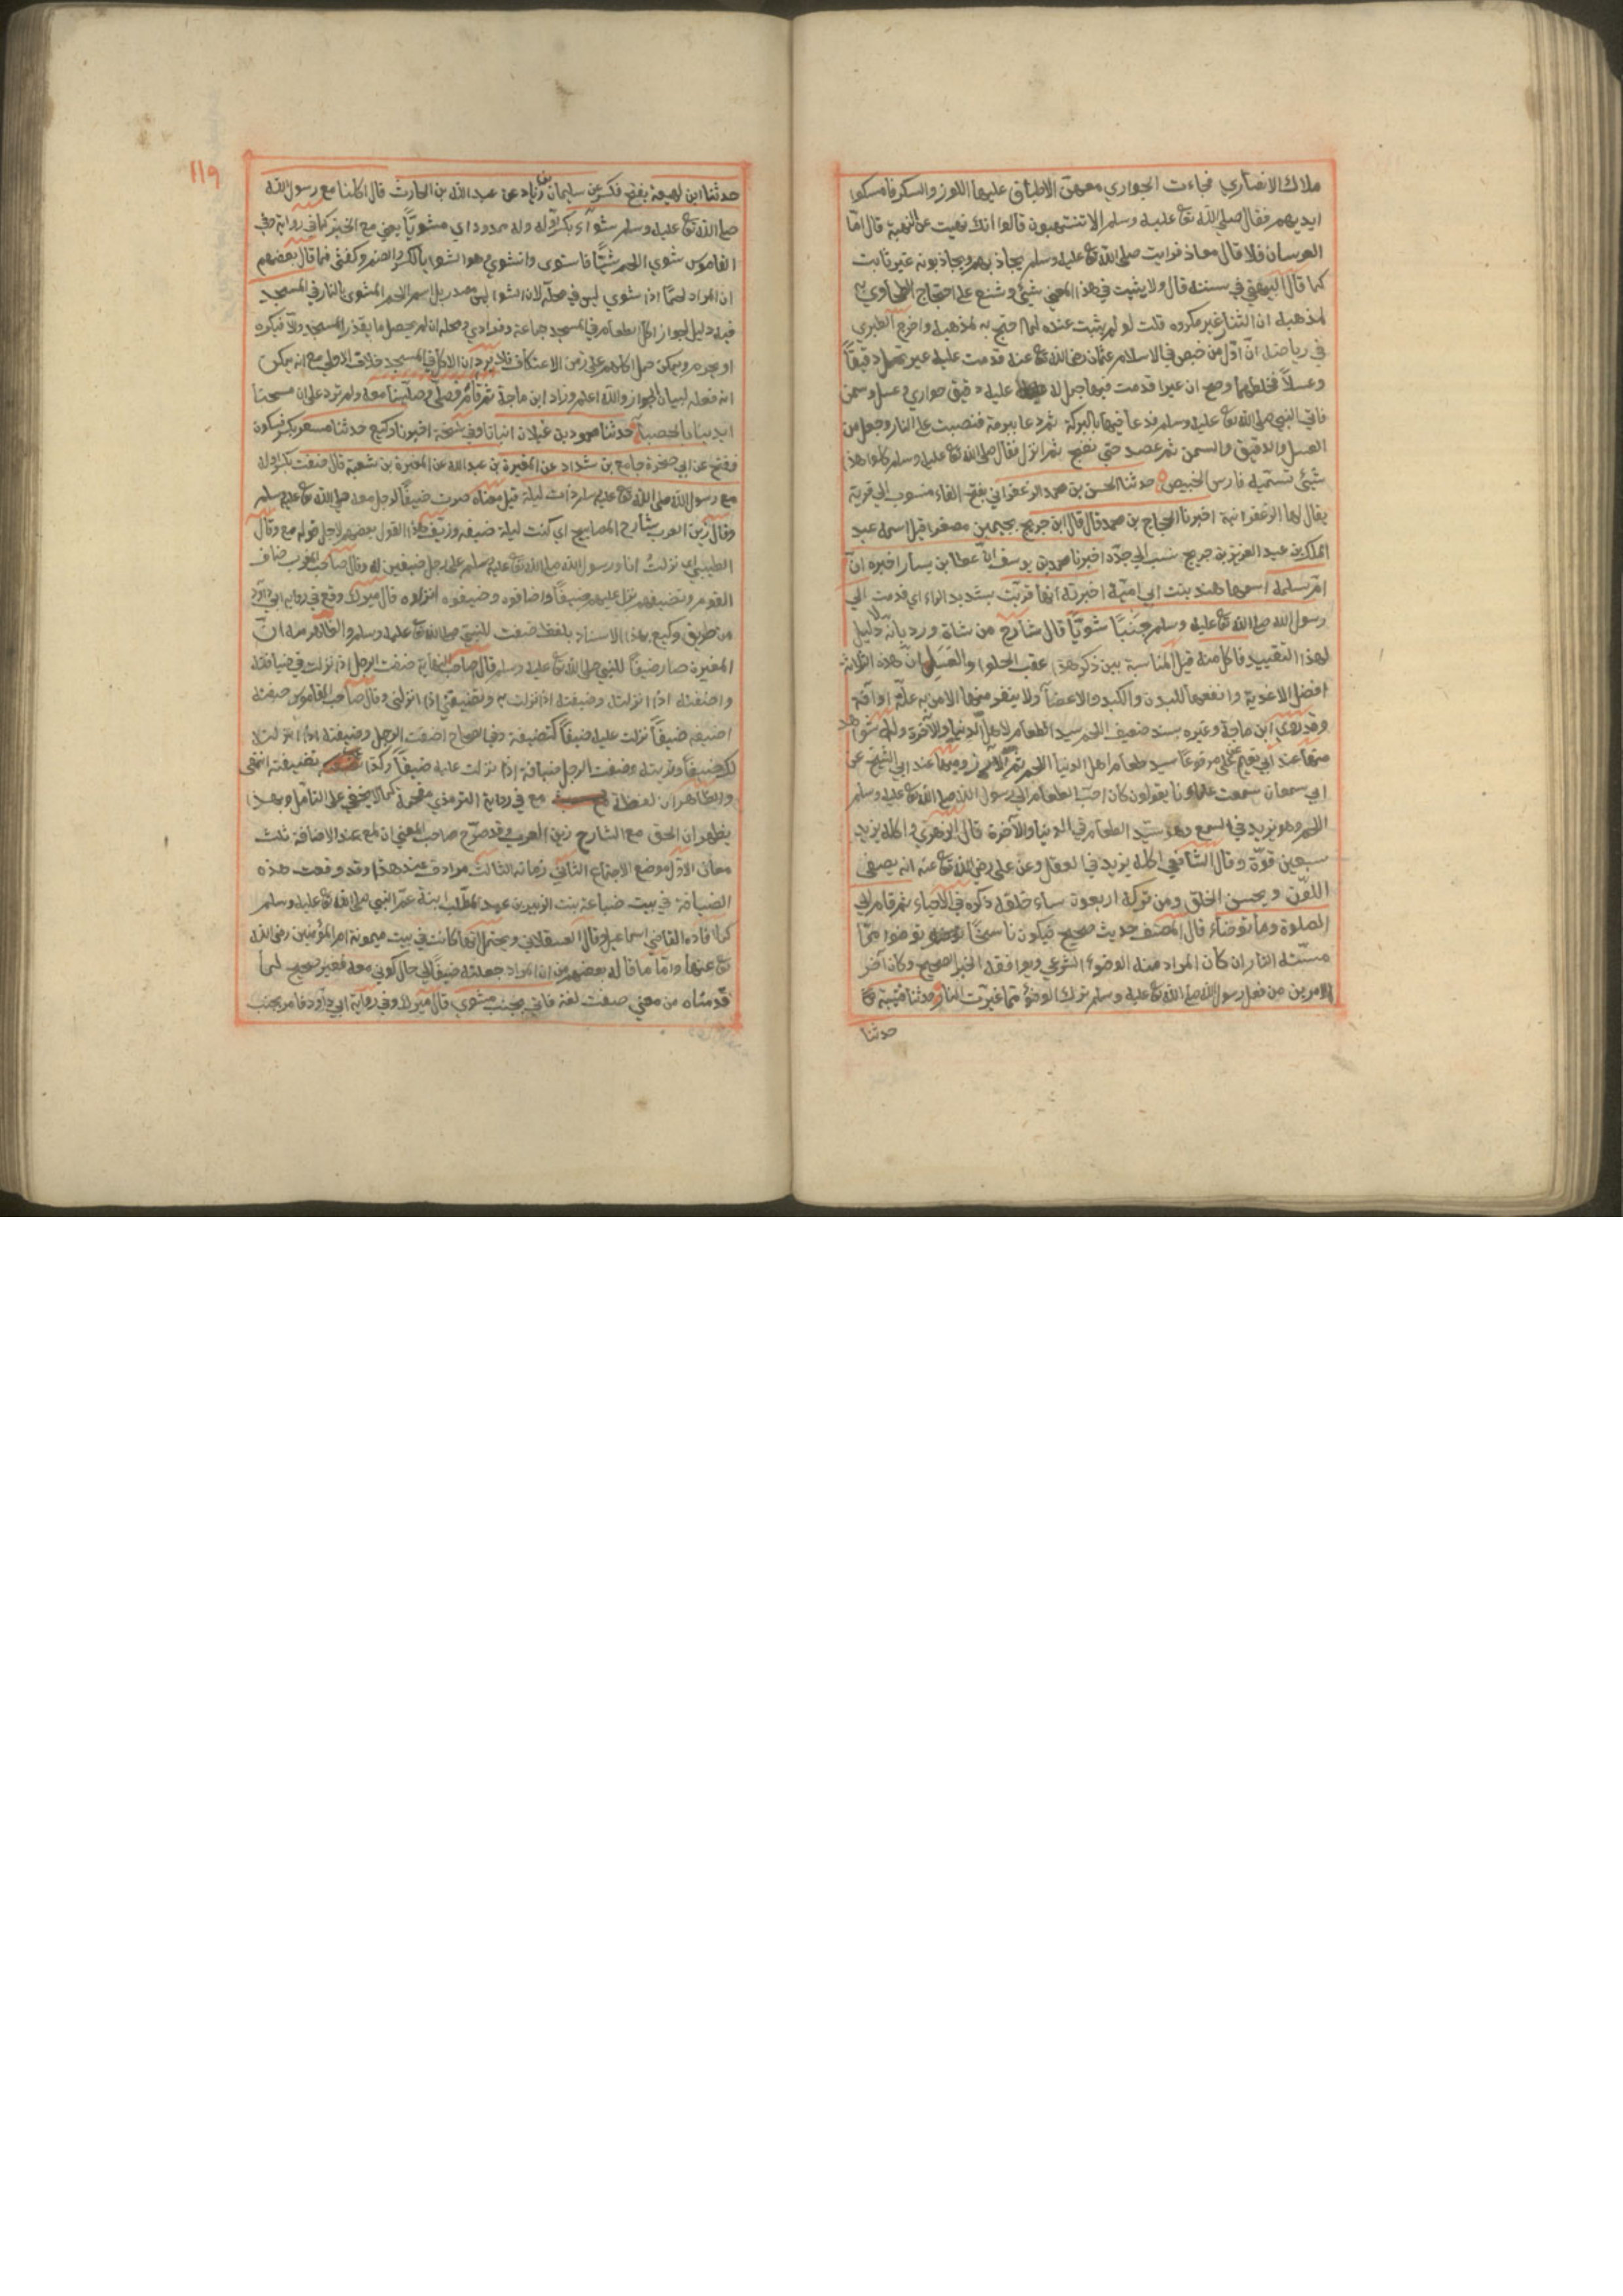 ملاك الانصاري فجاءت الجواري معهن الاطباق عليها اللوز والسكر فامسكوا
ايديهم فقال صلى الله تع عليه وسلم الا تنتهبون قالوا انك نهيت عن النهبة قال اما
العرسان فلا قال معاذ فرايت صلى الله تع عليه وسلم يجاذبهم ويجاذبونه غير ثابت
كما قال البيهقي في سننه قال ولا يثبت في هذا المعنى شيئ وشنع على احتجاج الطحاوي به
لمذهبه ان النثار غير مكروه قلت لو لم يثبت عنده لما احتج به لمذهبه واخرج الطبري
في رياضه ان اول من خبص في الاسلام عثمان رضى الله تع عنه قدمت عليه عير تحمل دقيقاً
وعسلاً فخلطهما وصح ان عيرا قدمت فيها جمل له عليه دقيق حواري وعسل وسمن
فاتى النبي صلى الله تع عليه وسلم فدعا فيها بالبركة ثم دعا ببرمة فنصبت على النار وجعل من
العسل والدقيق والسمن ثم عصد حتى نضج ثم انزل فقال صلى الله تع عليه وسلم كلوا هذا
شيئ تسميه فارس الخبيص حدثنا الحسن بن محمد الزعفراني بفتح الفاء منسوب الى قرية
يقال لها الزعفرانية اخبرنا الحجاج بن محمد قال قال ابن جريج بجيمين مصغرا قيل اسمه عبد
الملك بن عبد العزيز بن جريج نسب الى جده اخبرنا محمد بن يوسف ان عطا بن يسار اخبره ان
ام سلمة اسمها هند بنت ابي امية اخبرته انها قربت بتشديد الراء اي قدمت الى
رسول الله صلى الله تع عليه وسلم جنبًا شويًا قال شارح من شاة ورد بانه لا دليل
لهذا التقييد فاكل منه قيل المناسبة بين ذكر هذا عقب الحلوا والعسل ان هذه الثلاثة
افضل الاغذية وانفعها للبدن والكبد والاعضآ ولا ينفر منها الا من به علة او آفة
وقد روى ابن ماجة وغيره بسند ضعيف اللحم سيد الطعام لاهل الدنيا والآخرة وله شواهد
منها عند ابي نعيم عن على مرفوعًا سيد طعام اهل الدنيا اللحم ثم الارز ومنها عند ابي الشيخ عن
ابي سمعان سمعت علماونا يقولون كان احب الطعام الى رسول الله صلى الله تع عليه وسلم
اللحم وهو يزيد في السمع وهو سيد الطعام في الدنيا والآخرة قال الزهري واكله يزيد
سبعين قوة وقال الشافعي اكله يزيد في العقل وعن على رضى الله تع عنه انه يصفى
اللون ويحسن الخلق ومن تركه اربعون ساء خلقه ذكره في الاحياء ثم قام الى
الصلوة وما توضاء قال المصنف حديث صحيح فيكون ناسخًا توضوا ممّا
مسته النار ان كان المراد منه الوضوء الشرعي ويوافقه الخبر الصحيح وكان آخر
الامرين من فعل رسول الله صلى الله تع عليه وسلم ترك الوضوء مما غيرت النار حدثنا قتيبة
حدثنا
١١٩
حدثنا ابن لهيعة بفتح فكسر عن سليمان بن زياد عن عبد الله بن الحارث قال اكلنا مع رسول الله
صلى الله تع عليه وسلم شوآء بكسر اوله وله ممدود اي مشويًا يعني مع الخبز كما في رواية وفي
القاموس شوى اللحم شيًا فاستوى وانشوى وهو الشوا بالكسر والضم وكفنى فما قال بعضهم
ان المراد لحمًا اذا شوي ليس في محله لان الشوا ليس مصدر بل اسم اللحم المشوى بالنار في المسجد
فيه دليل لجواز اكل الطعام في المسجد جماعة وفرادى ومحله ان لم يحصل ما يقذر المسجد والا فيكره
او يحرم ويمكن حمل اكلهم على زمن الاعتكاف فلا يرد ان الاكل في المسجد خلاف الاولى مع انه يمكن
انه فعله لبيان الجواز والله اعلم وزاد ابن ماجة ثم قام فصلى وصلينا معه ولم نزد على ان مسحنا
ايدينا بالحصباء حدثنا محمود بن غيلان انبانا وفي نسخة اخبرنا وكيع حدثنا مسعر بكسر فسكون
ففتح عن ابي صخرة جامع بن شداد عن المغيرة بن عبد الله عن المغيرة بن شعبة قال ضفت بكسر اوله
مع رسول الله صلى الله تع عليه وسلم ذات ليلة قيل معناه صرت ضيفًا لرجل معه صلى الله تع عليه وسلم
وقال زين العرب شارح المصابيح اي كنت ليلة ضيفه وزيف هذا القول بعضهم لاجل قوله مع وقال
الطيبى اى نزلت انا ورسول الله صلى الله تع عليه وسلم على رجل ضيفين له وقال صاحب المغرب ضاف
القوم وتضيفهم نزل عليهم ضيفًا واضافوه وضيفوه انزلوه قال ميرك وقع في رواية ابي داود
من طريق وكيع بهذا الاسناد بلفظ ضفت للنبى صلى الله تع عليه وسلم والظاهر منه ان
المغيرة صار ضيفًا للنبي صلى الله تع عليه وسلم قال صاحب النهاية ضفت الرجل اذا نزلت في ضيافته
واضفته اذا انزلته وضيفته اذا نزلت به وتضيفني اذا انزلني وقال صاحب القاموس ضفته
اضيفه ضيفًا نزلت عليه ضيفًا كتضيفه وفي الصحاح اضفت الرجل وضيفته اذا انزلته
لك ضيفًا وقريته وضفت الرجل ضيافة اذا نزلت عليه ضيفًا وكذا تضيفته انتهى
والظاهر ان لفظة مع في رواية الترمذي مقحمة كما لا يخفى على التامل وبهذا
يظهر ان الحق مع الشارح زين العرب وقد صرح صاحب المغني ان لمع عند الاضافة ثلث
معان الاول موضع الاجتماع الثاني زمانه الثالث مرادف عند هذا وقد وقعت هذه
الضيافة في بيت ضباعة بنت الزبير بن عبد المطلب ابنة عم النبي صلى الله تع عليه وسلم
كما افاده القاضي اسماعيل وقال العسقلاني ويحتمل انها كانت في بيت ميمونة ام المؤمنين رضى الله
تع عنها واما ما قاله بعضهم من ان المراد جعلته ضيفًا لي حال كوني معه فغير صحيح لما
قدمناه من معنى ضفت لغة فاتي بجنب مشوي قال ميرك وفي رواية ابي داود فامر بجنب